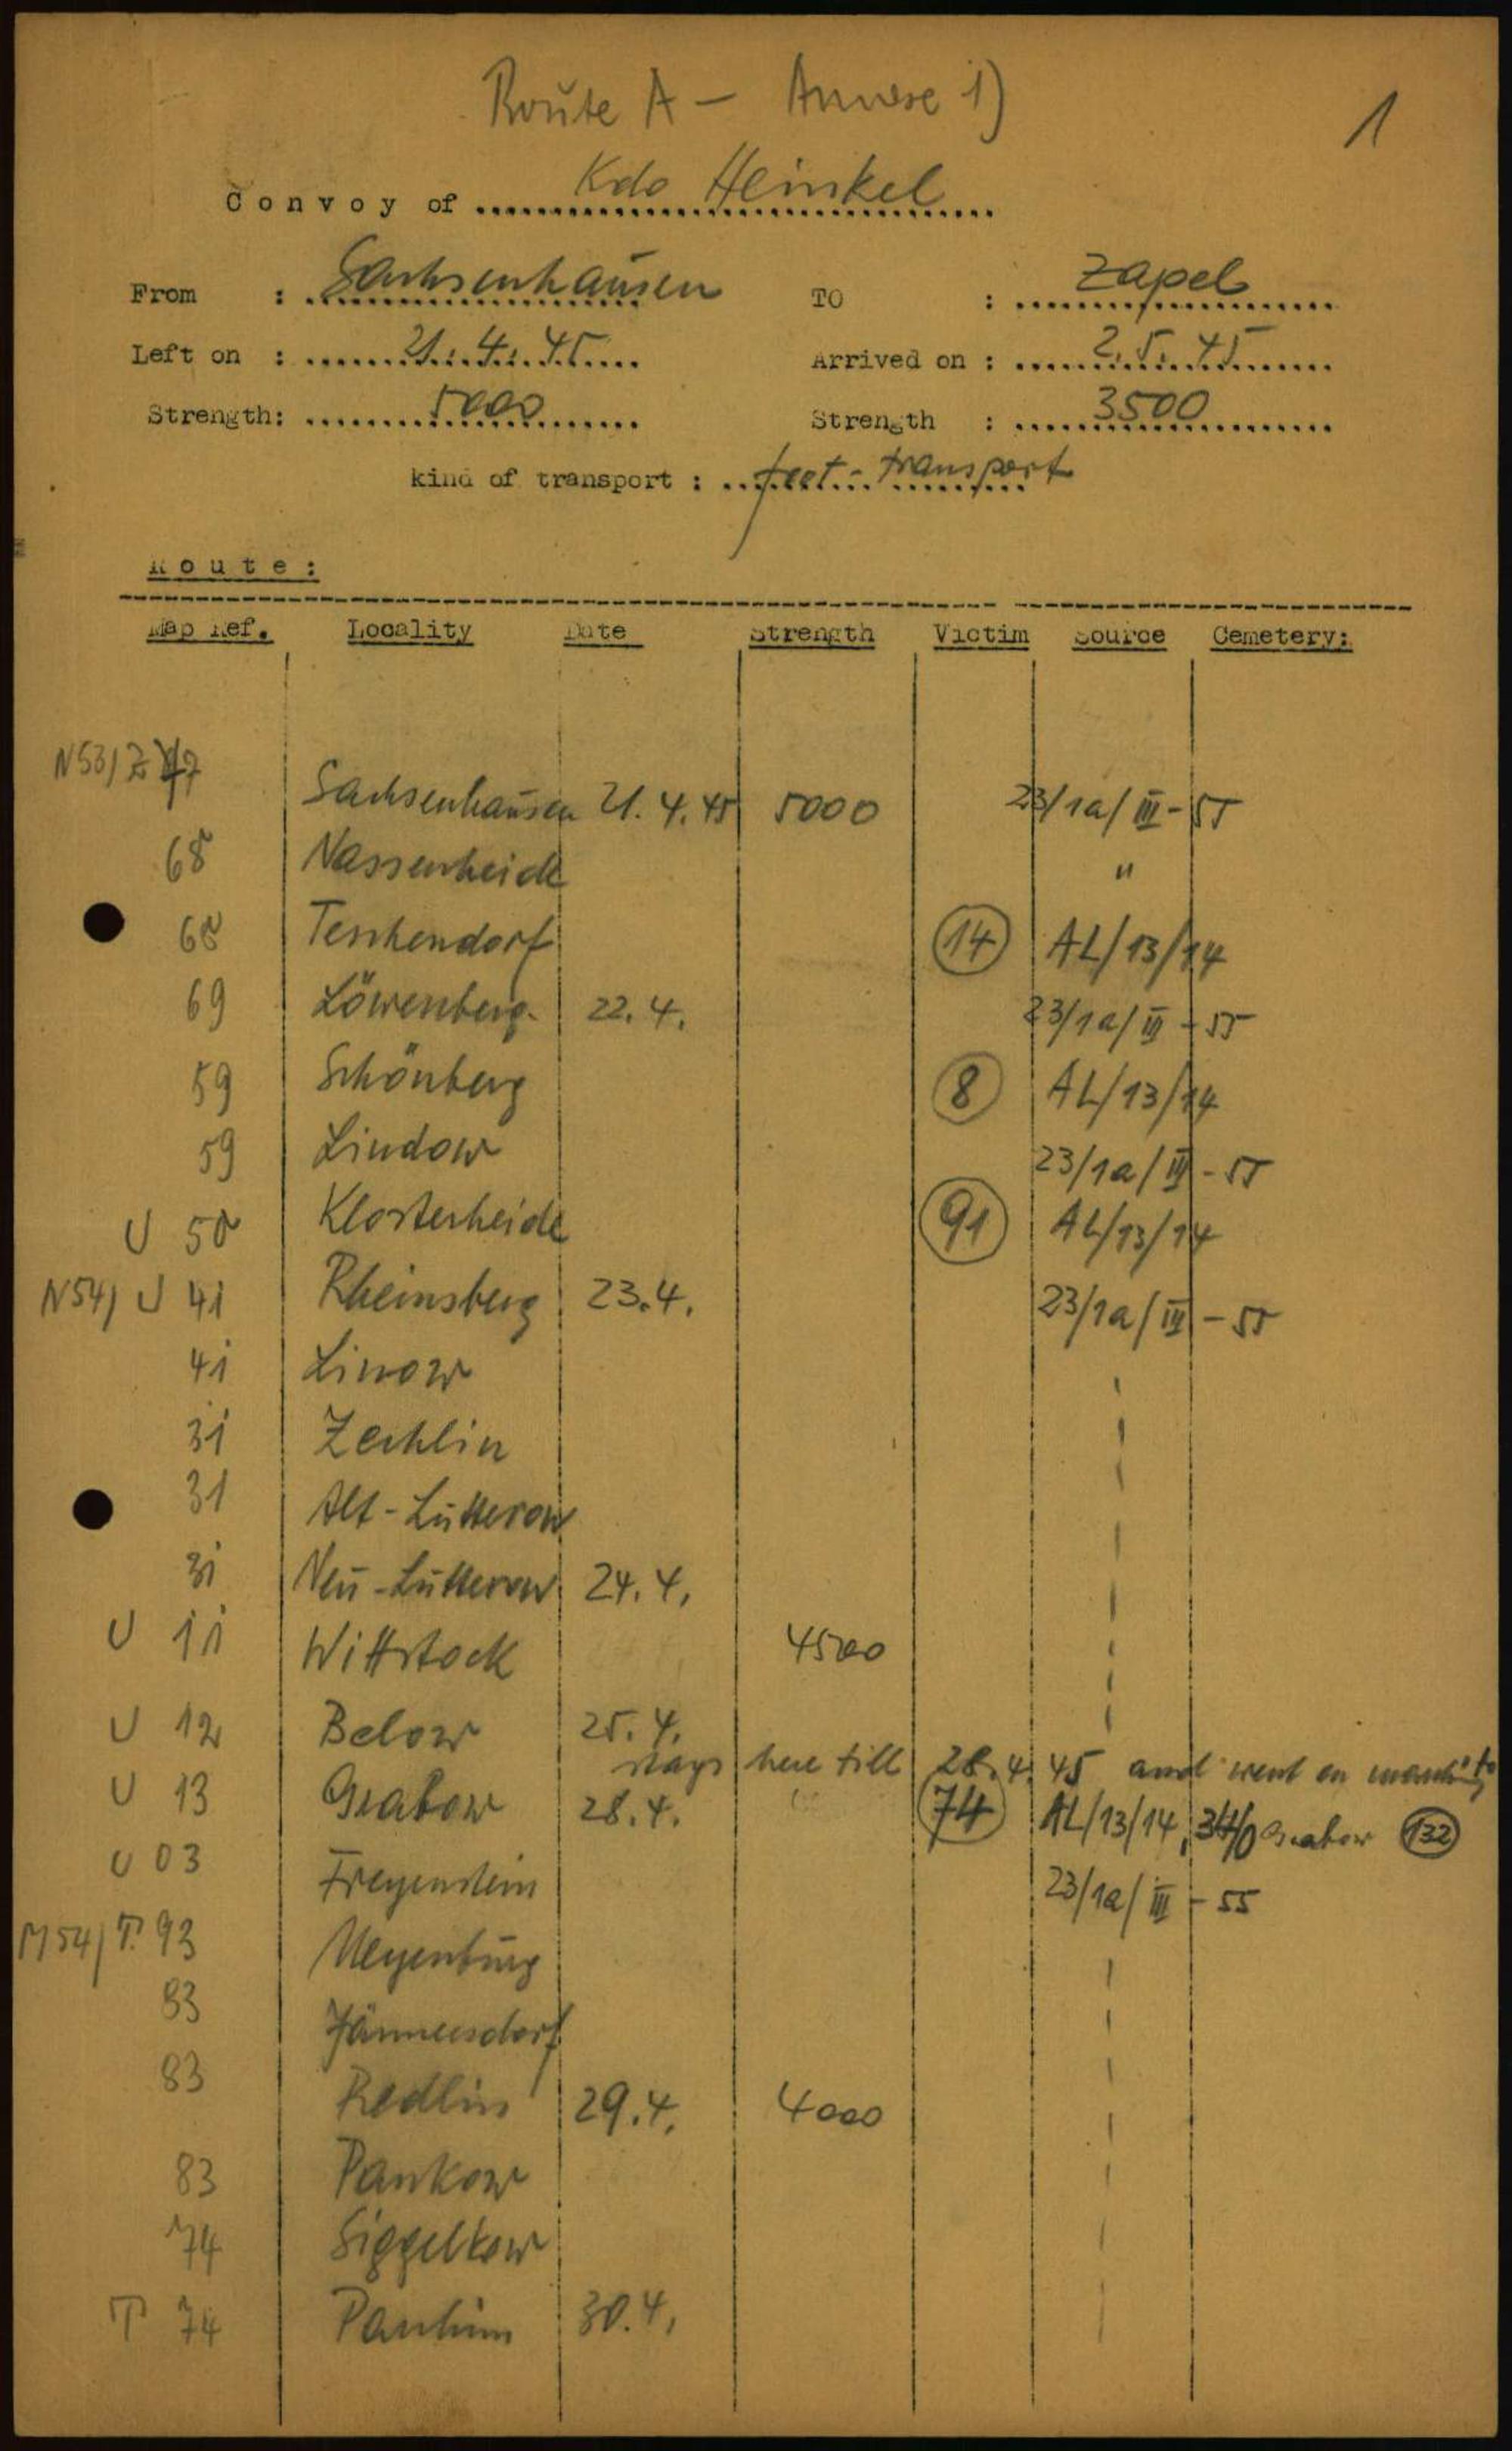 Route A - Annexe 1)
1
Convoy of Kdo Heinkel
From : Sachsenhausen TO : Zapel
Left on : 21.4.45 Arrived on : 2.5.45
Strength: 5000 Strength : 3500
kind of transport : feet-transport
Route:
Map Ref. Locality Date Strength Victim Source Cemetery:
N53/Z 47 Sachsenhausen 21.4.45 5000 23/1a/III-55
68 Nassenheide "
68 Teschendorf 14 AL/13/14
69 Löwenberg 22.4. 23/1a/III-55
59 Schönberg 8 AL/13/14
59 Lindow 23/1a/III-55
U 50 Klosterheide 91 AL/13/14
N54/U 41 Rheinsberg 23.4. 23/1a/III-55
41 Linow
31 Zechlin
31 Alt-Lutterow
31 Neu-Lutterow 24.4.
U 11 Wittstock 4500
U 12 Below 25.4.
stays here till 28.4.45 and went on marching to
U 13 Grabow 28.4. 74 AL/13/14, Grabow 132
U 03 Freyenstein 23/1a/III-55
M54/T. 93 Meyenburg
83 Jännersdorf
83 Redlin 29.4. 4000
83 Pankow
74 Siggelkow
T 74 Parchim 30.4.